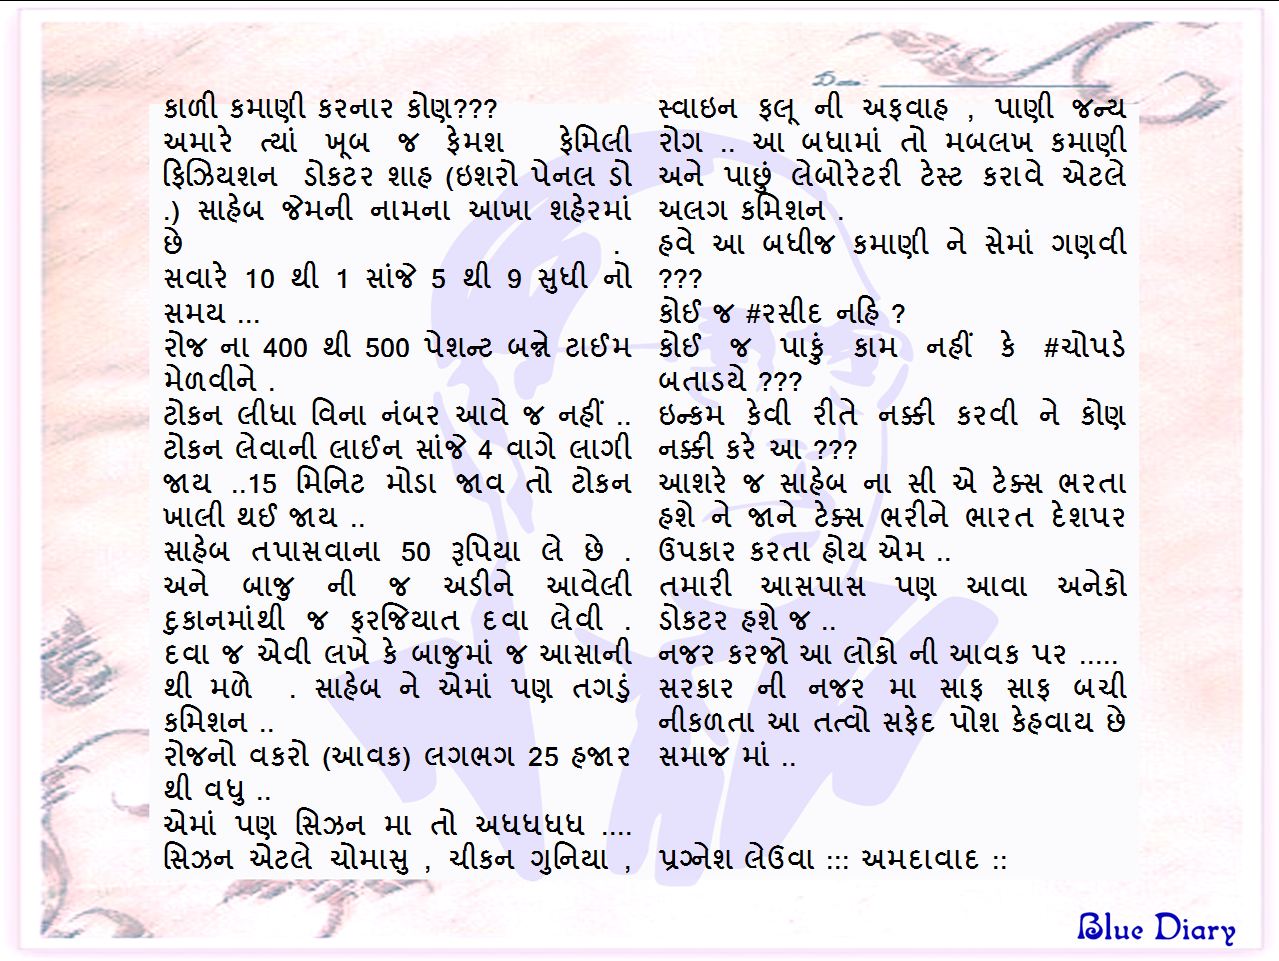 કાળી કમાણી કરનાર કોણ???
અમારે ત્યાં ખૂબ જ ફેમશ ફેમિલી
ફિઝિયશન ડોકટર શાહ (ઇશરો પેનલ ડો
.) સાહેબ જેમની નામના આખા શહેરમાં
છે .
સવારે 10 થી 1 સાંજે 5 થી 9 સુધી નો
સમય ...
રોજ ના 400 થી 500 પેશન્ટ બન્ને ટાઈમ
મેળવીને .
ટોકન લીધા વિના નંબર આવે જ નહીં ..
ટોકન લેવાની લાઈન સાંજે 4 વાગે લાગી
જાય ..15 મિનિટ મોડા જાવ તો ટોકન
ખાલી થઈ જાય ..
સાહેબ તપાસવાના 50 રૂપિયા લે છે .
અને બાજુ ની જ અડીને આવેલી
દુકાનમાંથી જ ફરજિયાત દવા લેવી .
દવા જ એવી લખે કે બાજુમાં જ આસાની
થી મળે . સાહેબ ને એમાં પણ તગડું
કમિશન ..
રોજનો વકરો (આવક) લગભગ 25 હજાર
થી વધુ ..
એમાં પણ સિઝન મા તો અધધધધ ....
સિઝન એટલે ચોમાસુ , ચીકન ગુનિયા ,
સ્વાઇન ફલૂ ની અફવાહ , પાણી જન્ય
રોગ .. આ બધામાં તો મબલખ કમાણી
અને પાછું લેબોરેટરી ટેસ્ટ કરાવે એટલે
અલગ કમિશન .
હવે આ બધીજ કમાણી ને સેમાં ગણવી
???
કોઈ જ #રસીદ નહિ ?
કોઈ જ પાકું કામ નહીં કે #ચોપડે
બતાડયે ???
ઇન્કમ કેવી રીતે નક્કી કરવી ને કોણ
નક્કી કરે આ ???
આશરે જ સાહેબ ના સી એ ટેક્સ ભરતા
હશે ને જાને ટેક્સ ભરીને ભારત દેશપર
ઉપકાર કરતા હોય એમ ..
તમારી આસપાસ પણ આવા અનેકો
ડોકટર હશે જ ..
નજર કરજો આ લોકો ની આવક પર .....
સરકાર ની નજર મા સાફ સાફ બચી
નીકળતા આ તત્વો સફેદ પોશ કેહવાય છે
સમાજ માં ..
પ્રગ્નેશ લેઉવા ::: અમદાવાદ ::
Blue Diary